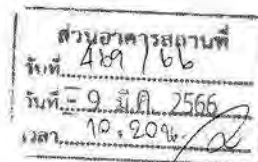 ส่วนอาคารสถานที่
รับที่ 469 / 66
วันที่ - 9 มี.ค. 2566
เวลา 10.20 น.